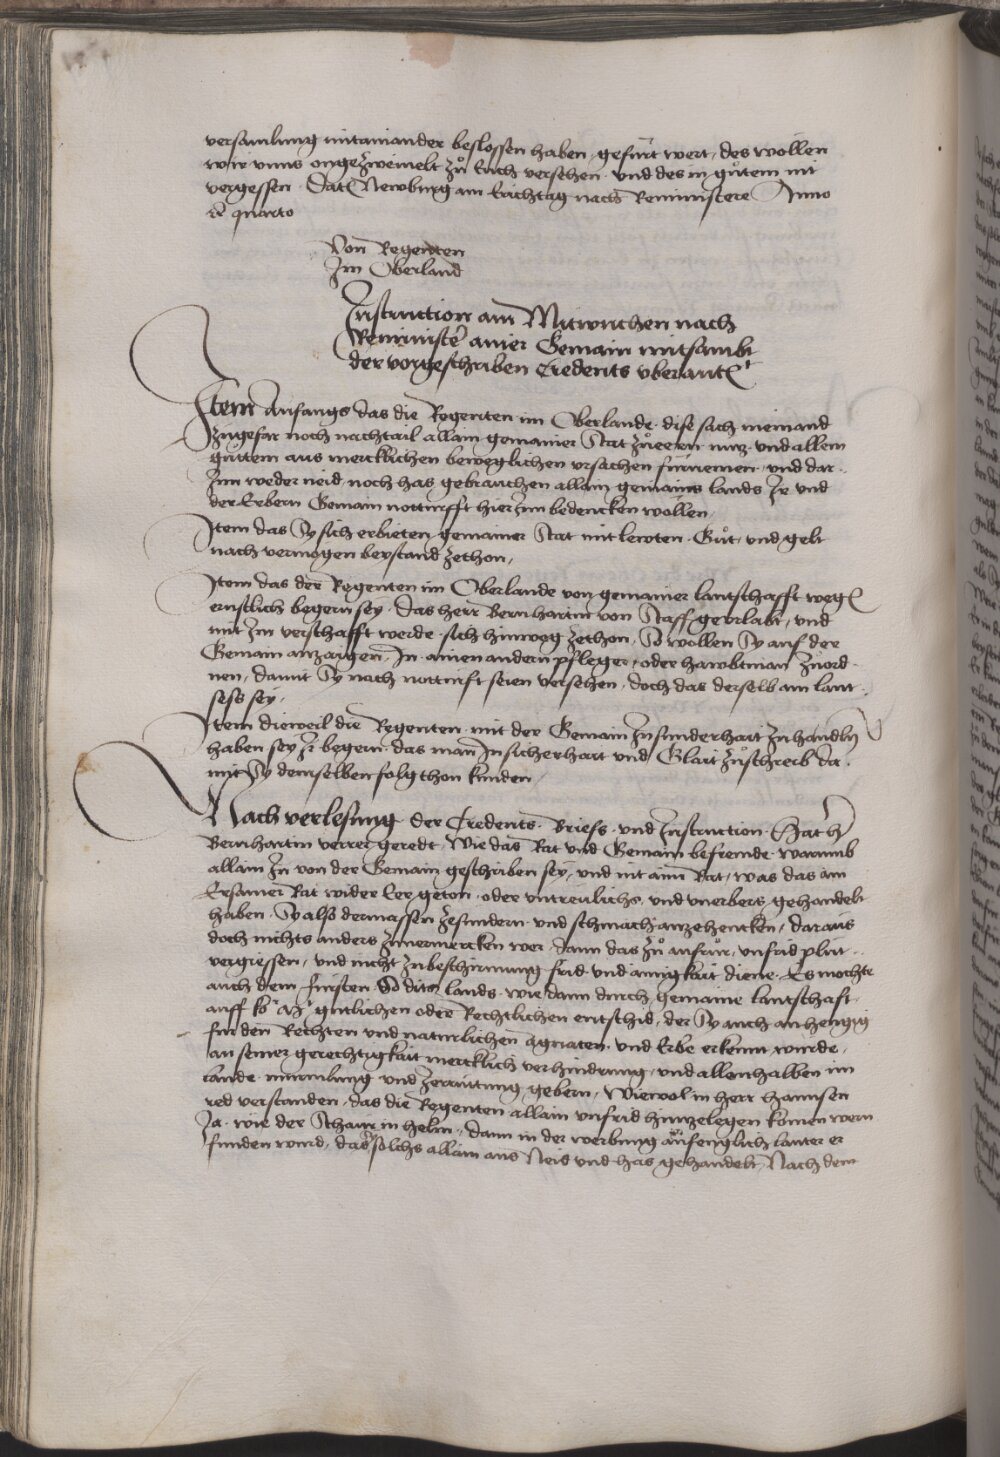 versamlung mitainander beslossen haben, gefürt wert, des wollen
wir vnns ongezweiuelt zů Euch versehen. vnd des in gůtem nit
vergessen. Dat Newburg am Erichtag nach Reministere Anno
quarto
Von Regenten
Im Oberland
Instruction am Mitwuchen nach
Reministe ainer Gemain mitsambt
der vorgeschriben Credents vberant
Item Anfangs das die Regenten im Oberlande. dise sach niemand
zugefar noch nachtail allain gemainer Stat zůeeren nuz. vnd allem
guttem aus mercklichen beweglichen vrsachen fürnemen. vnd dar
Inn weder neid noch has gebrauchen allain gemains lands Ir vnd
der Erbern Gemain notturfft hierInn bedencken wöllen,
Item das Sy sich erbieten gemainer Stat mit lewten. Gůt, vnd gelt
nach vermögen beystand zethon,
Item das der Regenten im Oberlande von gemainer lantschafft weg
ernstlich begern sey. das herr Bernhartin von Stauff geurlabt, vnd
mit Im verschafft werde. sich hinweg zethon, So wollen Sy auf der
Gemain anzaigen, In ainen andern pfleger, oder hawbtman zuord
nen, damit Sy nach notturft seien versehen, doch das derselb am lant
sess sey,
Item dieweil die Regenten mit der Gemain zu sunderhait zu handln
haben sey Ir begern. das man In sicherhait vnd Glait zůschreib da
mit Sy demselben folg thon kunden,
Nach verlesung der Credents. Briefs. vnd Instruction. Hat h
Bernhartin verrer geredt, Wie das Rat vnd Gemain befremde. warumb
allain In von der Gemain geschriben sey, vnd nit aim Rat, was das ain
Ersamer Rat wider Eer geton. oder vntreulichs vnd vnerbers gehandelt
haben. Sy also dermassen zesundern. vnd schmach anzehencken, daraus
doch nichts anders zuuermercken wer, dann das zů aufrůr, vnfrid plůt
vergiessen, vnd nicht zubeschirmung frid vnd ainigkait diene. Es möchte
auch dem fürsten. So ditz lands. wie dann durch gemaine lantschaft
auff gütlichen oder Rechtlichen entschid, der Sy auch anhengig
für den Rechten vnd naturlichen agnaten. vnd Erbe erkennt würde,
an seiner gerechtigkait mercklich verhindrung, vnd allenhalben im
lande vnd zerrüttung gebern, Wiewol in herr hannsen
red verstanden. das die Regenten allain vnfrid hinzelegen komen wern
Ja. wie der Schaur in helm, dann in der werbung anfenglich lauter er
funden würd, das solchs allain aus Neid vnd has gehandelt, Nach dem